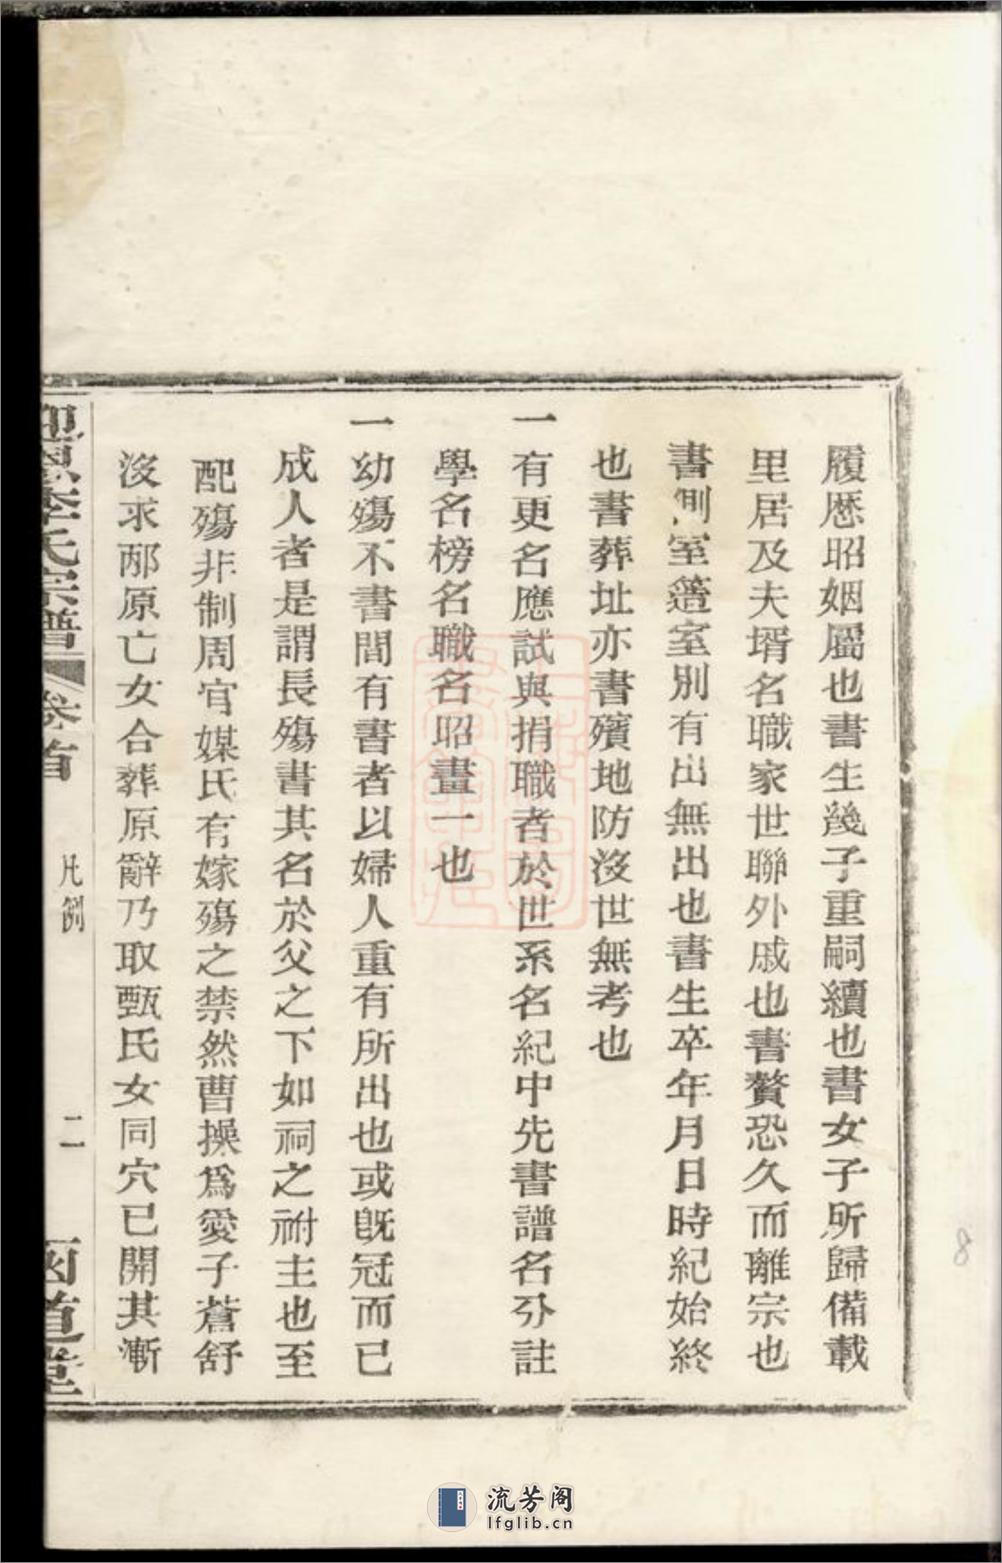 履歷昭姻屬也書生幾子重嗣續也書女子所歸備載
里居及夫壻名職家世聯外戚也書贅恐久而離宗也
書側室簉室別有出無出也書生卒年月日時紀始終
也書葬址亦書殯地防沒世無考也
一有更名應試與捐職者於世系名紀中先書譜名分註
學名榜名職名昭畫一也
一幼殤不書間有書者以婦人重有所出也或旣冠而已
成人者是謂長殤書其名於父之下如祠之祔主也至
配殤非制周官媒氏有嫁殤之禁然曹操爲愛子蒼舒
沒求邴原亡女合葬原辭乃取甄氏女同穴已開其漸
李氏宗譜
卷首
凡例
二
道堂
8
流芳阁
lfglib.cn